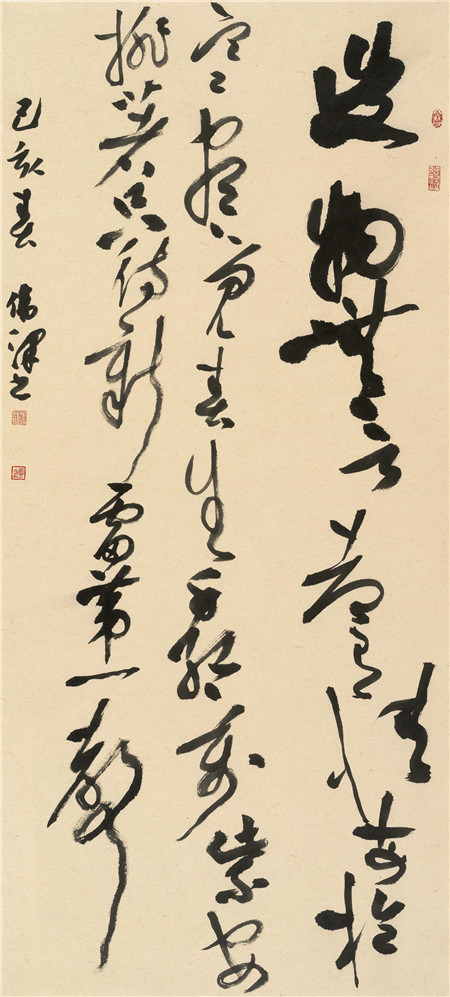 造物無言却有情每於
寒盡覺春生千紅萬紫安
排著只待新雷第一聲
己亥春 偉澤書